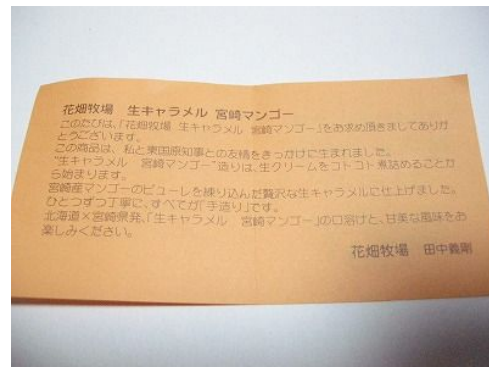 花畑牧場　生キャラメル 宮崎マンゴー
このたびは、「花畑牧場 生キャラメル 宮崎マンゴー」をお求め頂きましてありが
とうございます。
この商品は、私と東国原知事との友情をきっかけに生まれました。
“生キャラメル　宮崎マンゴー”造りは、生クリームをコトコト煮詰めることか
ら始まります。
宮崎産マンゴーのピューレを練り込んだ贅沢な生キャラメルに仕上げました。
ひとつずつ丁寧に、すべてが「手造り」です。
北海道×宮崎県発、「生キャラメル　宮崎マンゴー」の口溶けと、甘美な風味をお
楽しみください。
花畑牧場　田中義剛